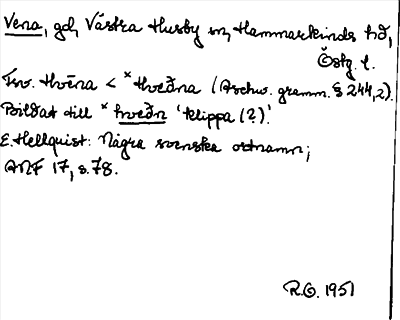 Vena, gd, Västra Husby sn, Hammarkinds hd,
Östg. l.
Fsv. Hvēna < *Hveðna (Aschw. gramm. § 244,2).
Bildat till *hveðn 'klippa (?)'.
E. Hellquist: Några svenska ortnamn;
ANF 17, s. 78.
R.O. 1951